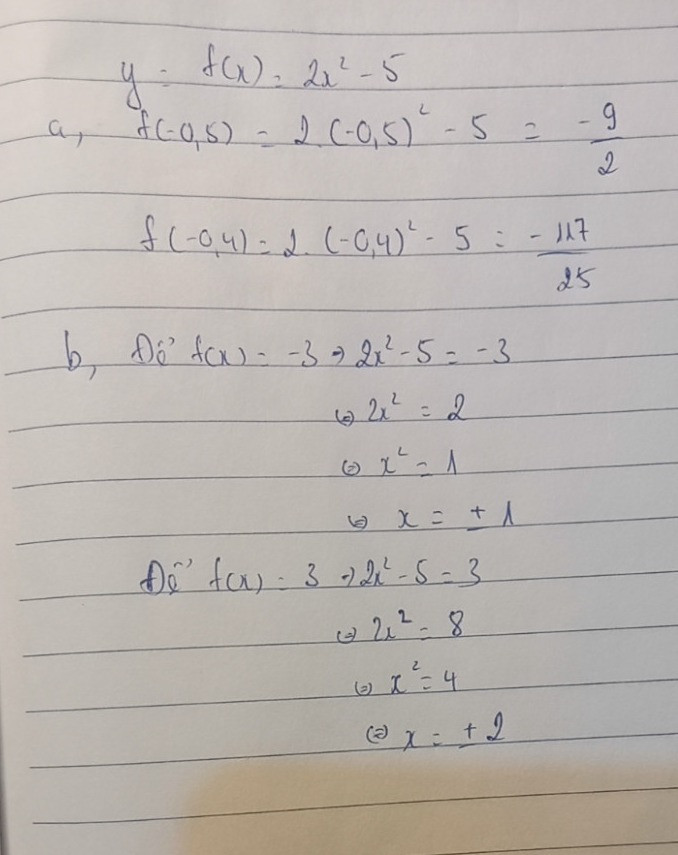 y = f(x) = 2x² - 5
a, f(-0,5) = 2.(-0,5)² - 5 = -9/2
f(-0,4) = 2.(-0,4)² - 5 = -117/25
b, Để f(x) = -3 => 2x² - 5 = -3
(=) 2x² = 2
(=) x² = 1
(=) x = ± 1
Để f(x) = 3 => 2x² - 5 = 3
(=) 2x² = 8
(=) x² = 4
(=) x = ± 2